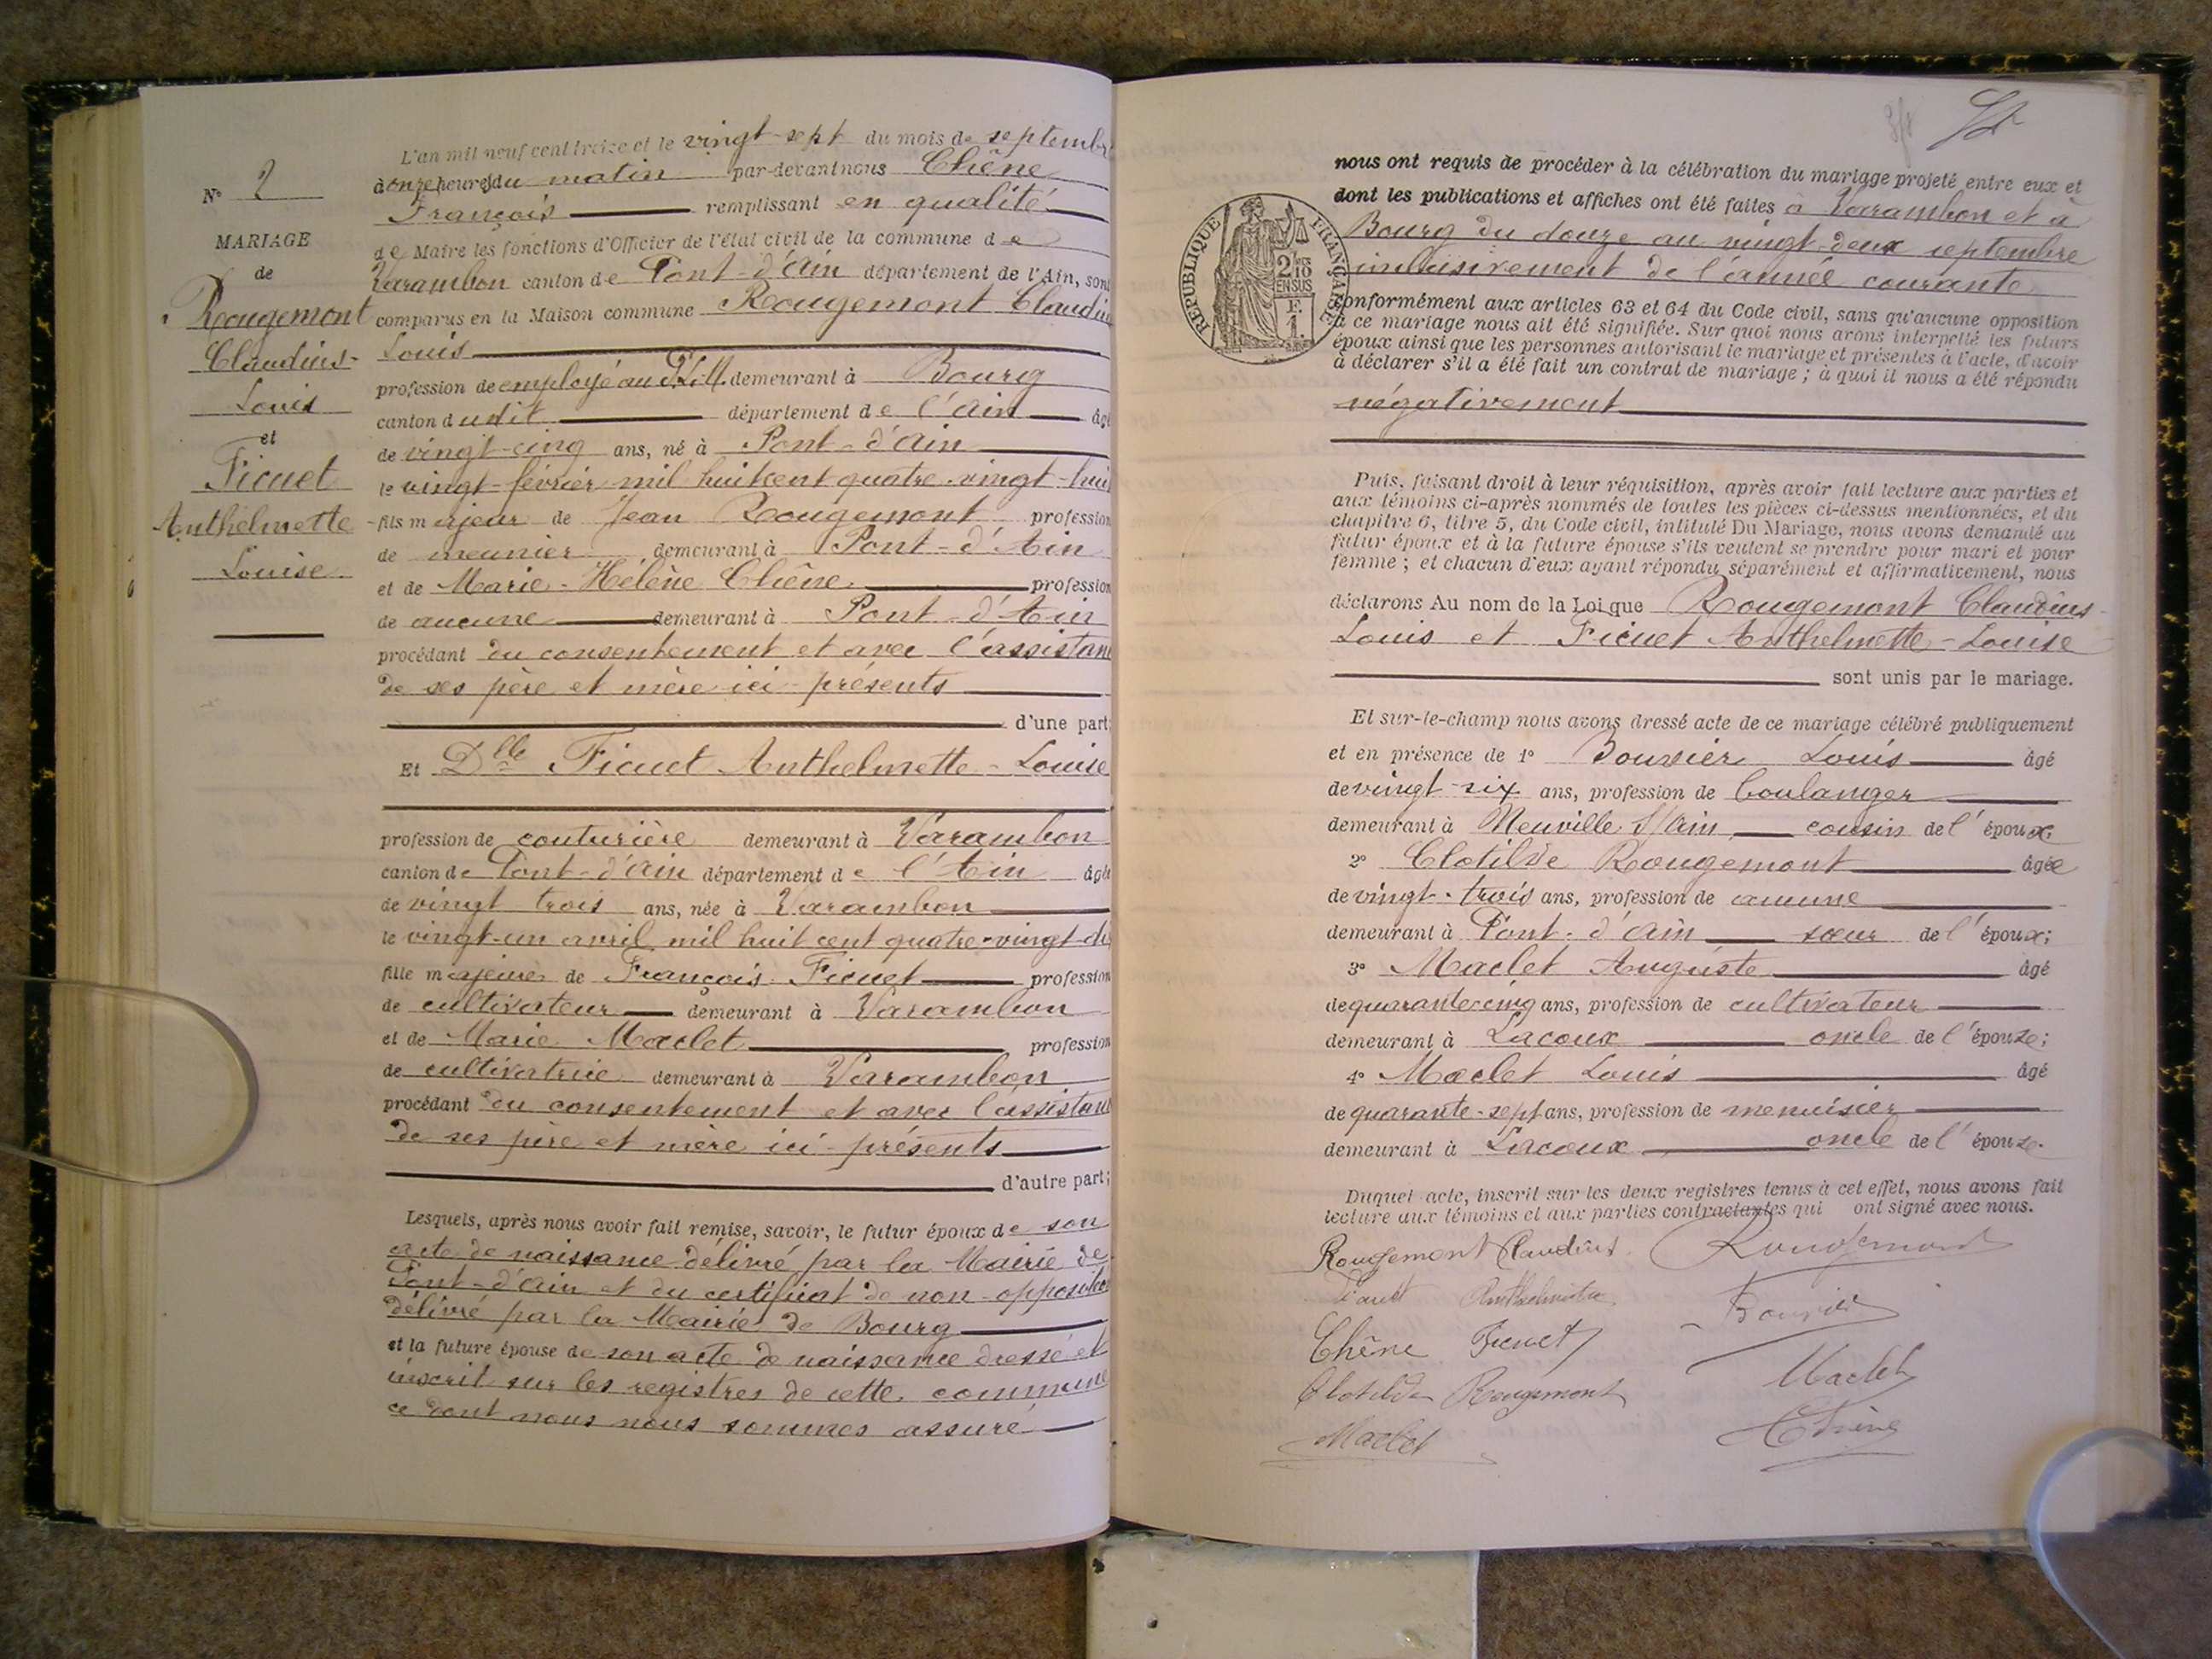 L'an mil neuf cent treize et le vingt-sept du mois de septembr
N° 2
à onze heures du matin par-devant nous Chêne
François remplissant en qualité
MARIAGE
de Maire les fonctions d'Officier de l'état civil de la commune de
de
Varambon canton de Pont-d'Ain département de l'Ain, sont
Rougemont
comparus en la Maison commune Rougemont Claudiu
Claudius-
Louis
profession de employé au P.L.M. demeurant à Bourg
Louis
canton dudit département de l'Ain âgé
et
de vingt-cinq ans, né à Pont-d'Ain
Ficuet
le vingt-février mil huit cent quatre-vingt-huit
Anthelmette
fils majeur de Jean Rougemont profession
de meunier demeurant à Pont-d'Ain
Louise
et de Marie-Hélène Chêne profession
de aucune demeurant à Pont-d'Ain
procédant du consentement et avec l'assistan
de ses père et mère ici-présents
d'une part;
Et Dlle Ficuet Anthelmette-Louise
profession de couturière demeurant à Varambon
canton de Pont-d'Ain département de l'Ain âgée
de vingt-trois ans, née à Varambon
le vingt-un avril mil huit cent quatre-vingt-dix
fille majeure de François Ficuet profession
de cultivateur demeurant à Varambon
et de Marie Maclet profession
de cultivatrice demeurant à Varambon
procédant du consentement et avec l'assistan
de ses père et mère ici-présents
d'autre part;
Lesquels, après nous avoir fait remise, savoir, le futur époux de son
acte de naissance délivré par la Mairie de
Pont-d'Ain et du certificat de non-opposition
délivré par la Mairie de Bourg
et la future épouse de son acte de naissance dressé et
inscrit sur les registres de cette commune
ce dont nous nous sommes assuré
nous ont requis de procéder à la célébration du mariage projeté entre eux et
dont les publications et affiches ont été faites à Varambon et à
Bourg du douze au vingt-deux septembre
inclusivement de l'année courante
RÉPUBLIQUE FRANÇAISE
2/10 EN SUS
F. 1.
conformément aux articles 63 et 64 du Code civil, sans qu'aucune opposition
à ce mariage nous ait été signifiée. Sur quoi nous avons interpellé les futurs
époux ainsi que les personnes autorisant le mariage et présentes à l'acte, d'avoir
à déclarer s'il a été fait un contrat de mariage; à quoi il nous a été répondu
négativement
Puis, faisant droit à leur réquisition, après avoir fait lecture aux parties et
aux témoins ci-après nommés de toutes les pièces ci-dessus mentionnées, et du
chapitre 6, titre 5, du Code civil, intitulé Du Mariage, nous avons demandé au
futur époux et à la future épouse s'ils veulent se prendre pour mari et pour
femme; et chacun d'eux ayant répondu séparément et affirmativement, nous
déclarons Au nom de la Loi que Rougemont Claudius-
Louis et Ficuet Anthelmette-Louise
sont unis par le mariage.
Et sur-le-champ nous avons dressé acte de ce mariage célébré publiquement
et en présence de 1° Bouvier Louis âgé
de vingt-six ans, profession de boulanger
demeurant à Neuville s/Ain, cousin de l'époux;
2° Clotilde Rougemont âgée
de vingt-trois ans, profession de aucune
demeurant à Pont-d'Ain sœur de l'époux;
3° Maclet Auguste âgé
de quarante-cinq ans, profession de cultivateur
demeurant à Lacoux oncle de l'épouse;
4° Maclet Louis âgé
de quarante-sept ans, profession de menuisier
demeurant à Lacoux oncle de l'épouse.
Duquel acte, inscrit sur les deux registres tenus à cet effet, nous avons fait
lecture aux témoins et aux parties contractantes qui ont signé avec nous.
Rougemont Claudius. Rougemont
Ficuet Anthelmette Bouvier
Chêne Ficuet
Clotilde Rougemont Maclet
Maclet Chêne